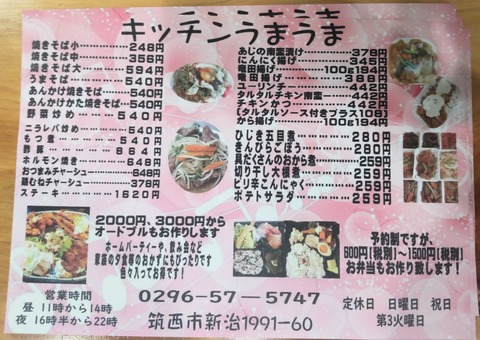 キッチンうまうま
焼きそば小……248円
焼きそば中……356円
焼きそば大……594円
うまそば……540円
あんかけ焼きそば……540円
あんかけかた焼きそば……540円
野菜炒め……540円
ニラレバ炒め……540円
もつ煮……540円
酢豚……864円
ホルモン焼き……648円
おつまみチャーシュー……648円
鶏むねチャーシュー……378円
ステーキ……1620円
あじの南蛮漬け……378円
にんにく揚げ……345円
竜田揚げ……100g194円
竜田揚げ……388円
ユーリンチー……442円
タルタルチキン南蛮……442円
チキンかつ……442円
(タルタルソース付きプラス108)
から揚げ……100g194円
ひじき五目煮……280円
きんぴらごぼう……280円
具だくさんのおから煮……259円
切り干し大根煮……259円
ピリ辛こんにゃく……259円
ポテトサラダ……259円
2000円、3000円から
オードブルもお作りします
ホームパーティーや、飲み会など
家族の夕食等のおかずにもぴったりです
色々入ってお得です!
予約制ですが、
600円(税別)～1500円(税別)
お弁当もお作り致します!
営業時間
昼 11時から14時
夜 16時半から22時
0296-57-5747
筑西市新治1991-60
定休日 日曜日 祝日
第3火曜日